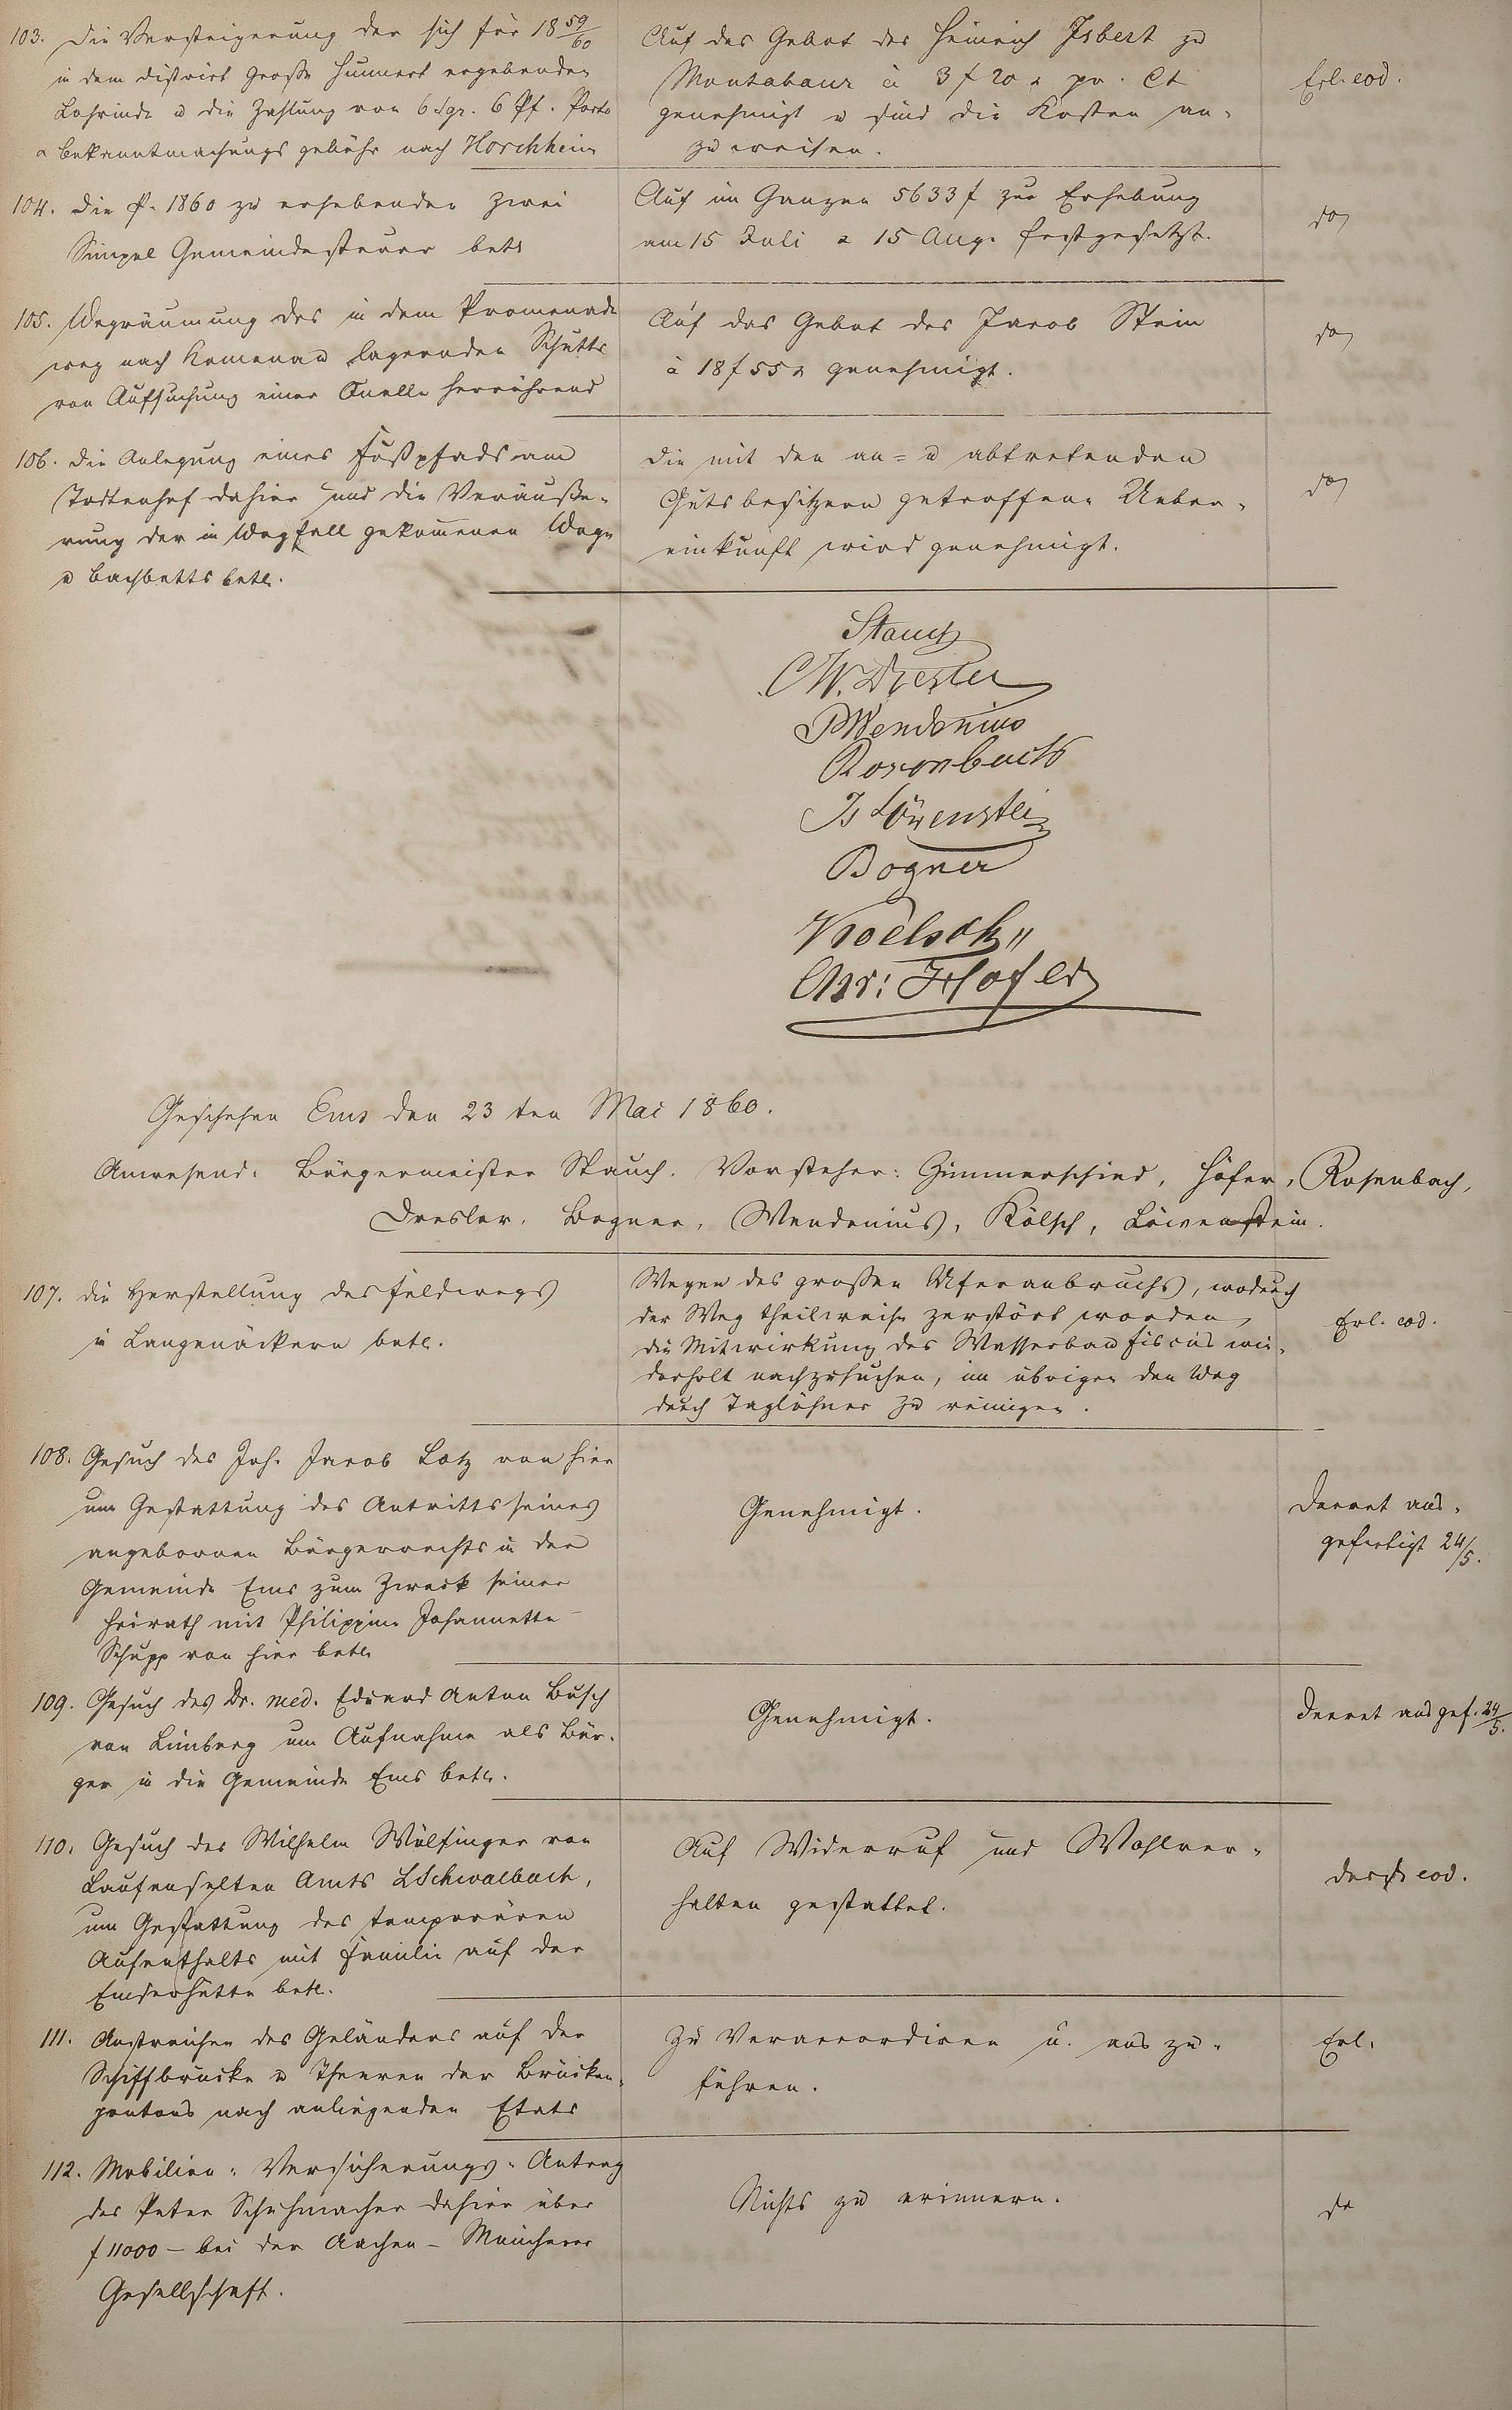 103. Die Versteigerung der sich für 18 59/60
in dem District Große Hunnert ergebenden
Lohrinde u die Zahlung von 6 Sgr. 6 Pf. Porto
u Bekanntmachungsgebühr nach Horchheim
Auf das Gebot des Heinrich Isbert zu
Montabaur à 3 f 20 x pr. Ct
genehmigt u sind die Kosten an-
zuweisen.
Erl. eod.
104. Die p. 1860 zu erhebenden zwei
Simpel Gemeindesteuer betr
Auf im Ganzen 5633 f zur Erhebung
am 15 Juli u 15 Aug. festgesetzt.
do
105. Wegräumung des in dem Promenade
weg nach Kemenau lagernden Schutts
von Aufsuchung einer Quelle herrührend
Auf das Gebot des Jacob Stein
à 18 f 55 x genehmigt.
do
106. Die Anlegung eines Fußpfads am
Todtenhof dahier und die Veräuße-
rung der in Wegfall gekommenen Wege
u Bachbetts betr.
Die mit den an- u abtretenden
Gutsbesitzern getroffene Ueber-
einkunft wird genehmigt.
do
Stauch
CW. Dresler
PWendenius
Rosenbach
Is Löwenstein
Bogner
Koelsch
Chr: Höfer
Geschehen Ems den 23ten Mai 1860.
Anwesend: Bürgermeister Stauch. Vorsteher: Gimmerschied, Höfer, Rosenbach,
Dresler, Bogner, Wendenius, Kölsch, Löwenstein.
107. Die Herstellung des Feldwegs
in Langenäckern betr.
Wegen des großen Uferanbruchs, wodurch
der Weg theilweise zerstört worden,
die Mitwirkung des Wasserbaufiscus wie-
derholt nachzusuchen, im übrigen den Weg
durch Taglöhner zu reinigen.
Erl. eod.
108. Gesuch des Joh. Jacob Lotz von hier
um Gestattung des Antritts seines
angebornen Bürgerrechts in der
Gemeinde Ems zum Zweck seiner
Heirath mit Philippine Johannette
Schupp von hier betr
Genehmigt.
Decret aus-
gefertigt 24/5.
109. Gesuch des Dr. med. Eduard Anton Busch
von Limburg um Aufnahme als Bür-
ger in die Gemeinde Ems betr.
Genehmigt.
Decret ausgef. 24/5.
110. Gesuch des Wilhelm Wölfinger von
Laufenselten Amts LSchwalbach,
um Gestattung des temporären
Aufenthalts mit Familie auf der
Emserhütte betr.
Auf Widerruf und Wohlver-
halten gestattet.
eod.
111. Anstreichen des Geländers auf der
Schiffbrücke u Theeren der Brücken-
pontons nach anliegenden Etats
Zu Veraccordiren u. auszu-
führen.
Erl.
112. Mobilien-Versicherungs-Antrag
des Peter Schuhmacher dahier über
f 11000 – bei der Aachen – Münchener
Gesellschaft.
Nichts zu erinnern.
do